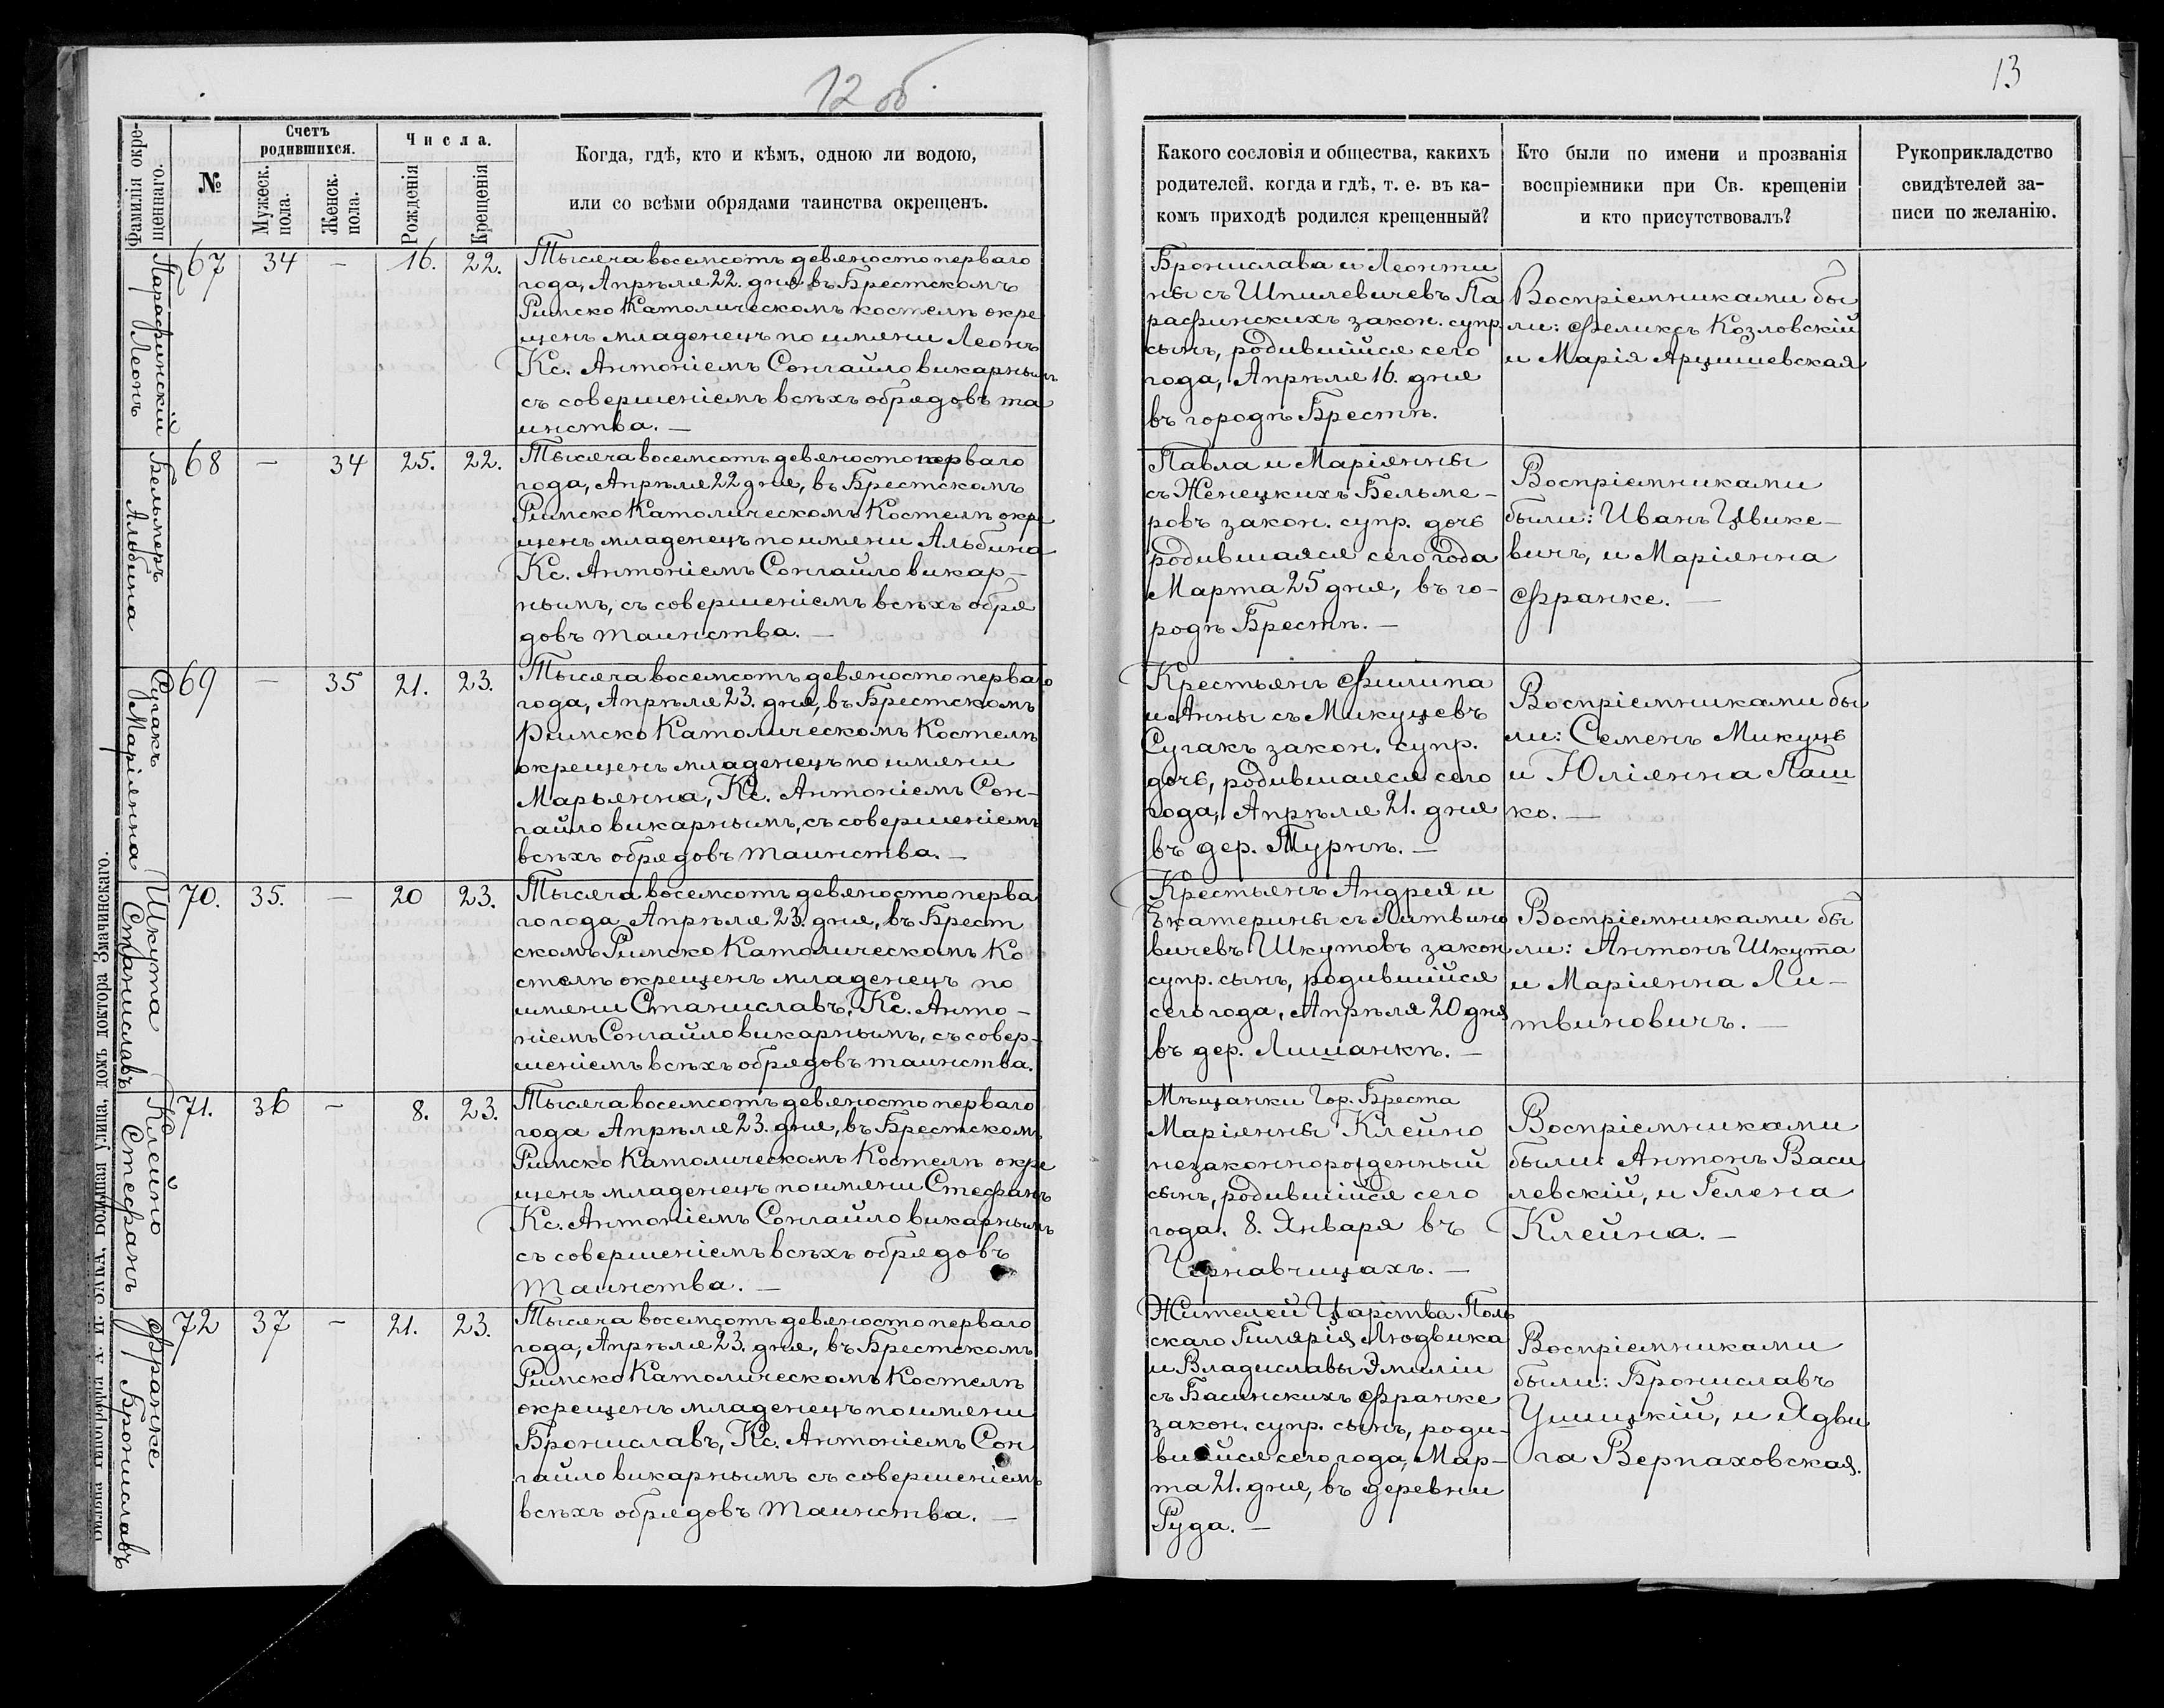 12 об.
13
Фамилія окре-
щеннаго.
№
Счетъ
родившихся.
Мужеск.
пола.
Женск.
пола.
Числа.
Рожденія
Крещенія
Когда, гдѣ, кто и кѣмъ, одною ли водою,
или со всѣми обрядами таинства окрещенъ.
Какого сословія и общества, какихъ
родителей, когда и гдѣ, т. е. въ ка-
комъ приходѣ родился крещенный?
Кто были по имени и прозванія
воспріемники при Св. крещеніи
и кто присутствовалъ?
Рукоприкладство
свидѣтелей за-
писи по желанію.
Парафинскій
Леонъ
67
34
—
16.
22.
Тысяча восемсотъ девяносто перваго
года, Апрѣля 22. дня въ Брестскомъ
Римско Католическомъ костелѣ окре
щенъ младенецъ по имени Леонъ
Кс. Антоніемъ Сонгайло викарнымъ
съ совершеніемъ всѣхъ обрядовъ та
инства. —
Бронислава и Леонти
ны съ Шпилевичевъ Па
рафинскихъ закон. супр.
сынъ, родившійся сего
года, Апрѣля 16. дня
въ городѣ Брестѣ.
Воспріемниками бы
ли: Феликсъ Козловскій
и Марія Арцишевская
Бельмеръ
Альбина
68
—
34
25.
22.
Тысяча восемсотъ девяносто перваго
года, Апрѣля 22 дня, въ Брестскомъ
Римско Католическомъ Костелѣ окре
щенъ младенецъ по имени Альбина
Кс. Антоніемъ Сонгайло викар-
нымъ, съ совершеніемъ всѣхъ обря
довъ таинства. —
Павла и Маріянны
съ Женецкихъ Бельме-
ровъ закон. супр. дочь
родившаяся сего года
Марта 25 дня, въ го-
родѣ Брестѣ. —
Воспріемниками
были: Иванъ Цвике-
вичъ, и Маріянна
Франке. —
Сугакъ
Маріянна
69
—
35
21.
23.
Тысяча восемсотъ девяносто перваго
года, Апрѣля 23. дня, въ Брестскомъ
Римско Католическомъ Костелѣ
окрещенъ младенецъ по имени
Марьянна, Кс. Антоніемъ Сон-
гайло викарнымъ, съ совершеніемъ
всѣхъ обрядовъ таинства. —
Крестьянъ Филипа
и Анны съ Микуцевъ
Сугакъ закон. супр.
дочь, родившаяся сего
года, Апрѣля 21. дня
въ дер. Турнѣ. —
Воспріемниками бы
ли: Семенъ Микуць
и Юліянна Паш
ко. —
Шкута
Станиславъ
70.
35.
—
20
23.
Тысяча восемсотъ девяносто перва
го года Апрѣля 23. дня, въ Брест
скомъ Римско Католическомъ Ко
стелѣ окрещенъ младенецъ по
имени Станиславъ, Кс. Анто-
ніемъ Сонгайло викарнымъ, съ совер-
шеніемъ всѣхъ обрядовъ таинства.
Крестьянъ Андрея и
Екатерины съ Литвино
вичевъ Шкутовъ закон
супр. сынъ, родившійся
сего года, Апрѣля 20 дня
въ дер. Лишанкѣ. —
Воспріемниками бы
ли: Антонъ Шкута
и Маріянна Ли-
твиновичъ. —
Клейно
Стефанъ
71.
36
—
8.
23.
Тысяча восемсотъ девяносто перваго
года Апрѣля 23. дня, въ Брестскомъ
Римско Католическомъ Костелѣ окре
щенъ младенецъ по имени Стефанъ
Кс. Антоніемъ Сонгайло викарнымъ
съ совершеніемъ всѣхъ обрядовъ
таинства. —
Мѣщанки Гор. Бреста
Маріянны Клейно
незаконнорожденный
сынъ, родившійся сего
года. 8. Января въ
Чернавчицахъ. —
Воспріемниками
были: Антонъ Васи
левскій, и Гелена
Клейна. —
Франке
Брониславъ
72
37
—
21.
23.
Тысяча восемсотъ девяносто перваго
года, Апрѣля 23. дня, въ Брестскомъ
Римско Католическомъ Костелѣ
окрещенъ младенецъ по имени
Брониславъ, Кс. Антоніемъ Сон
гайло викарнымъ съ совершеніемъ
всѣхъ обрядовъ таинства. —
Жителей Царства Поль
скаго Гилярія Людвика
и Владиславы Эмиліи
съ Басинскихъ Франке
закон. супр. сынъ, роди-
вшійся сего года, Мар-
та 21. дня, въ деревни
Руда. —
Воспріемниками
были: Брониславъ
Ушицкій, и Ядви
га Верпаховская.
Вильна Типографія А. И. ЗАКА, Большая улица, домъ доктора Змачинскаго.